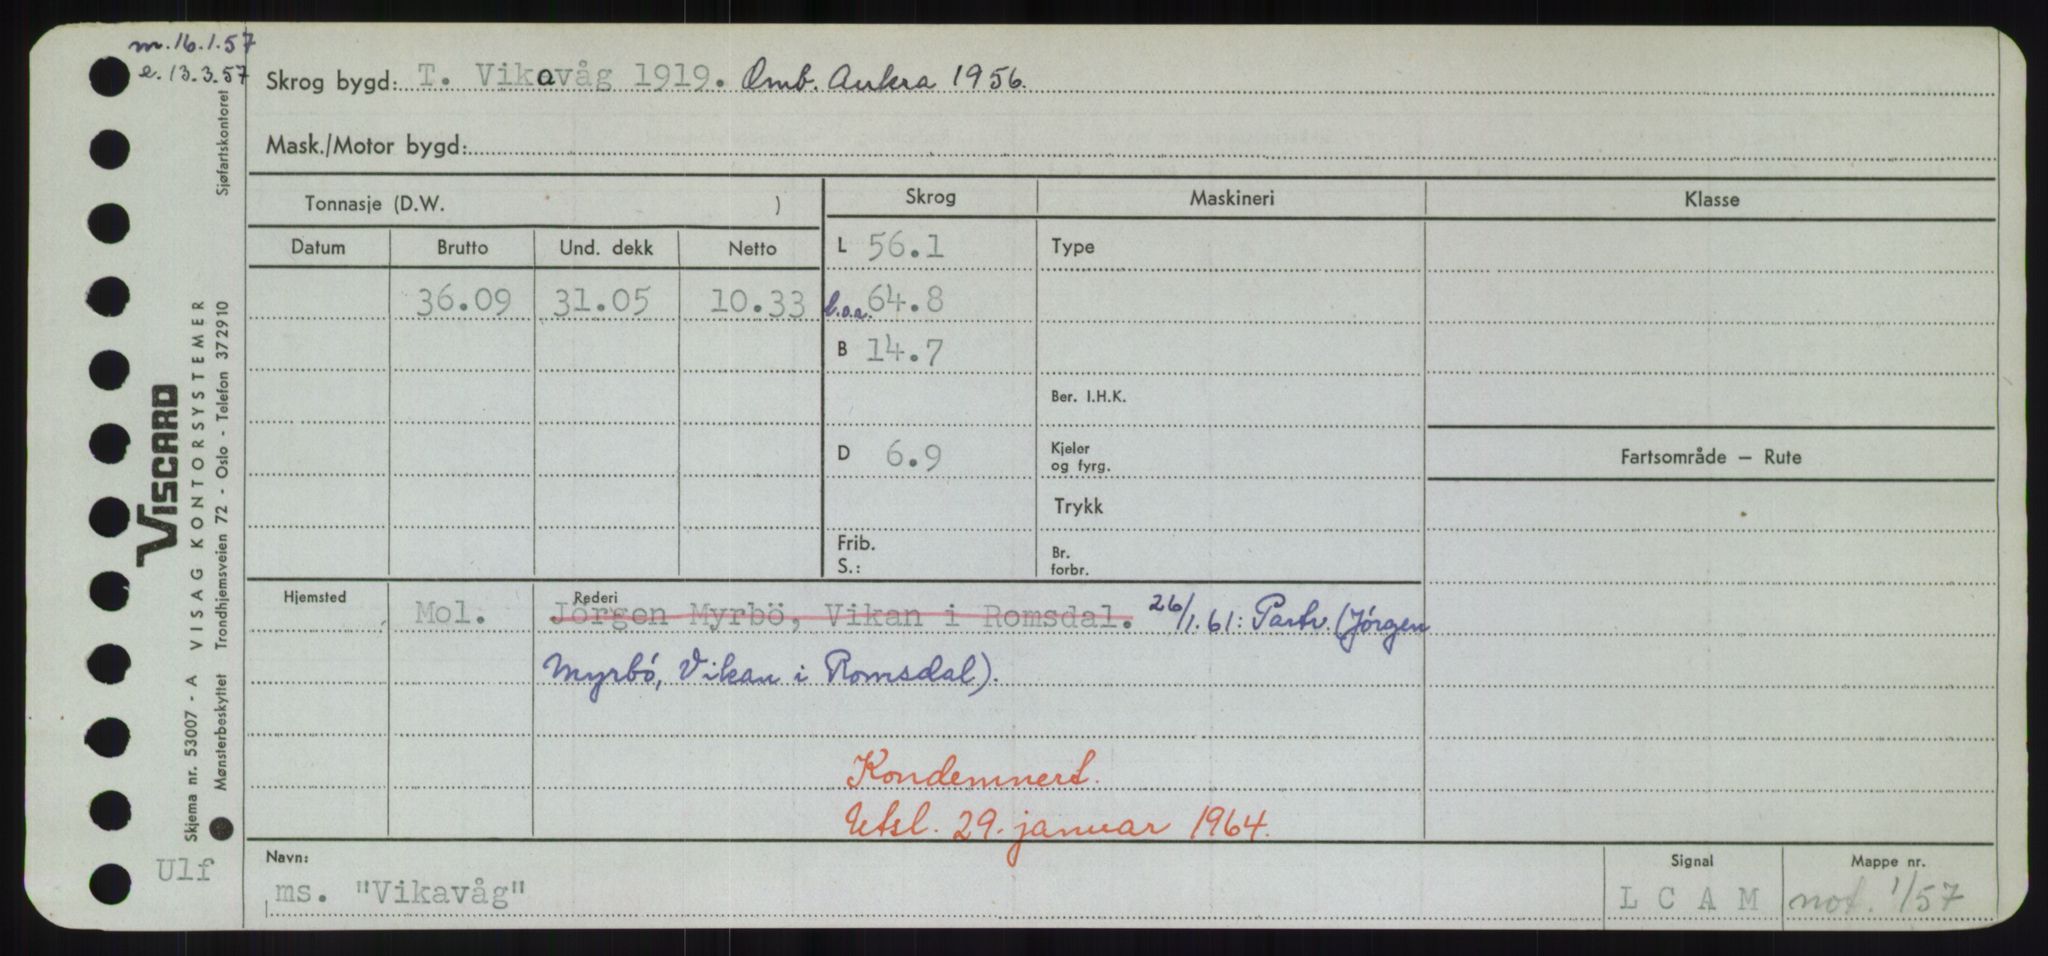 m. 16.1.57
e. 13.3.57
Skrog bygd: T. Vikavåg 1919. Omb. Aukra 1956.
Mask./Motor bygd:
Tonnasje (D.W. )
Skrog Maskineri Klasse
Datum Brutto Und. dekk Netto
L 56.1 Type
36.09 31.05 10.33 l.o.a. 64.8
B 14.7
Ber. I.H.K.
D 6.9 Kjeler og fyrg.
Fartsområde — Rute
Trykk
Frib.
S.:
Br. forbr.
Hjemsted Mol. Rederi
Jörgen Myrbö, Vikan i Romsdal. 26/1.61: Partr. (Jörgen
Myrbó, Vikan i Romsdal).
Kondemnert.
Utsl. 29. januar 1964.
Navn: ms. "Vikavåg"
Signal L C A M
Mappe nr. not. 1/57
Ulf
VISCARD
Skjema nr. 53007 - A VISAG KONTORSYSTEMER
Mønsterbeskyttet Trondhjemsveien 72 - Oslo - Telefon 372910
Sjøfartskontoret